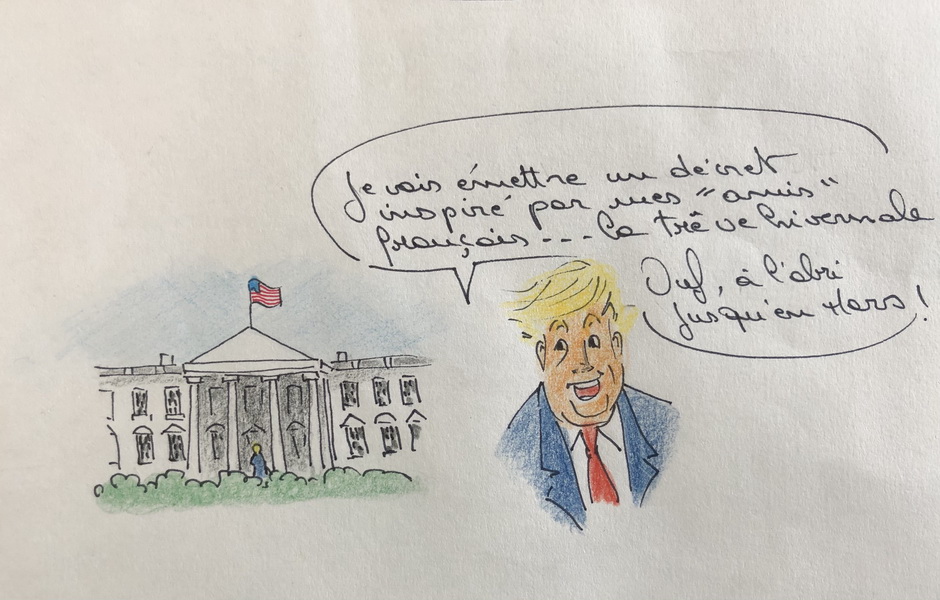 Je vais émettre un décret
inspiré par mes "amis"
français --- la trêve hivernale
Ouf, à l'abri
jusqu'en Mars !